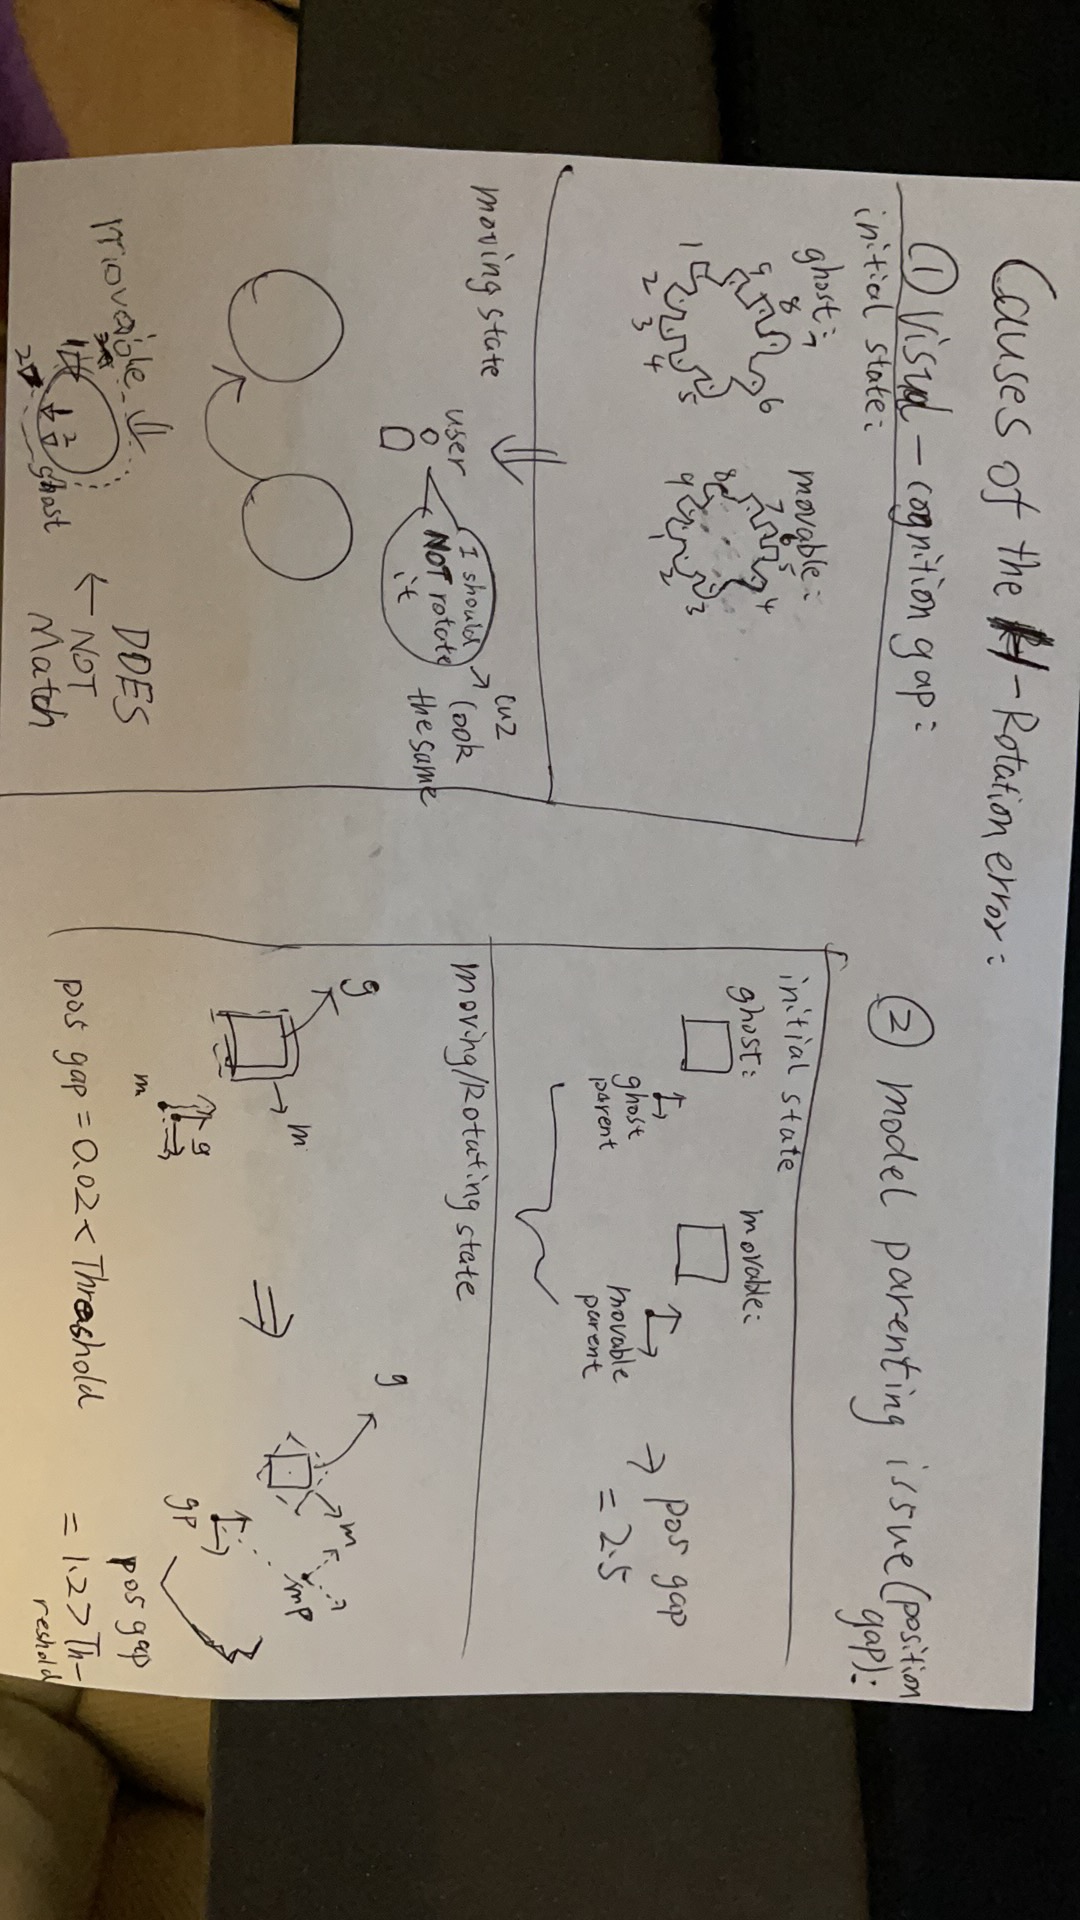 Causes of the H-Rotation error:
① Visual-cognition gap:
initial state:
ghost:
8
9
6
1
5
2
3
4
movable:
7
6
5
4
8
3
9
1
2
moving state
user
I should
NOT rotate
it
cuz
look
the same
Movable
1
2
2
ghost
DOES
NOT
Match
② model parenting issue (position
gap):
initial state
ghost:
movable:
ghost
parent
movable
parent
→ pos gap
= 2.5
moving/Rotating state
g
m
g
m
pos gap = 0.02 < Threshold
g
m
mp
gp
pos gap
= 1.2 > Th-
reshold